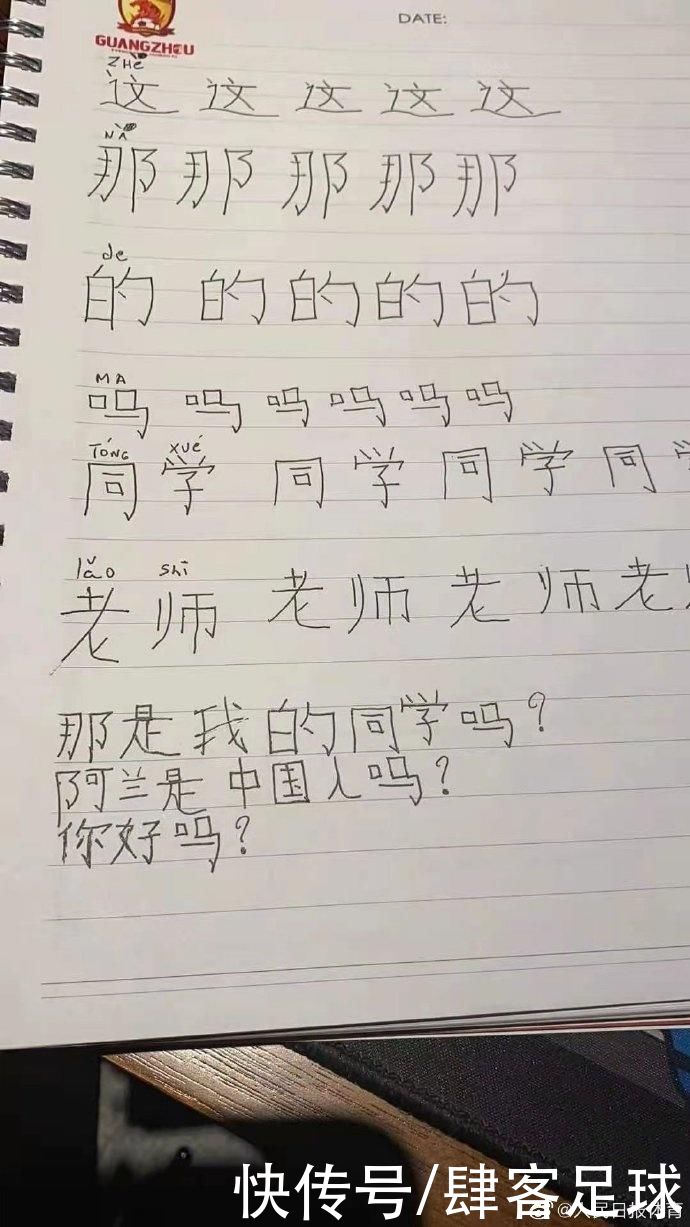 DATE:
GUANGZHOU
ZHè
这 这 这 这 这
NÀ
那 那 那 那 那
de
的 的 的 的 的
MA
吗 吗 吗 吗 吗 吗
TÓNG xué
同 学 同 学 同 学 同
lǎo shī
老 师 老 师 老 师 老
那是我的同学吗?
阿兰是中国人吗?
你好吗?
快传号/肆客足球
@人民日报体育